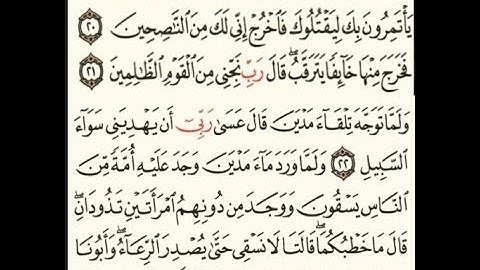 يَأْتَمِرُونَ بِكَ لِيَقْتُلُوكَ فَٱخْرُجْ إِنِّى لَكَ مِنَ ٱلنَّـٰصِحِينَ ٢٠
فَخَرَجَ مِنْهَا خَآئِفًا يَتَرَقَّبُ ۖ قَالَ رَبِّ نَجِّنِى مِنَ ٱلْقَوْمِ ٱلظَّـٰلِمِينَ ٢١
وَلَمَّا تَوَجَّهَ تِلْقَآءَ مَدْيَنَ قَالَ عَسَىٰ رَبِّىٓ أَن يَهْدِيَنِى سَوَآءَ
ٱلسَّبِيلِ ٢٢ وَلَمَّا وَرَدَ مَآءَ مَدْيَنَ وَجَدَ عَلَيْهِ أُمَّةً مِّنَ
ٱلنَّاسِ يَسْقُونَ وَوَجَدَ مِن دُونِهِمُ ٱمْرَأَتَيْنِ تَذُودَانِ ۖ
قَالَ مَا خَطْبُكُمَا ۖ قَالَتَا لَا نَسْقِى حَتَّىٰ يُصْدِرَ ٱلرِّعَآءُ ۖ وَأَبُونَا